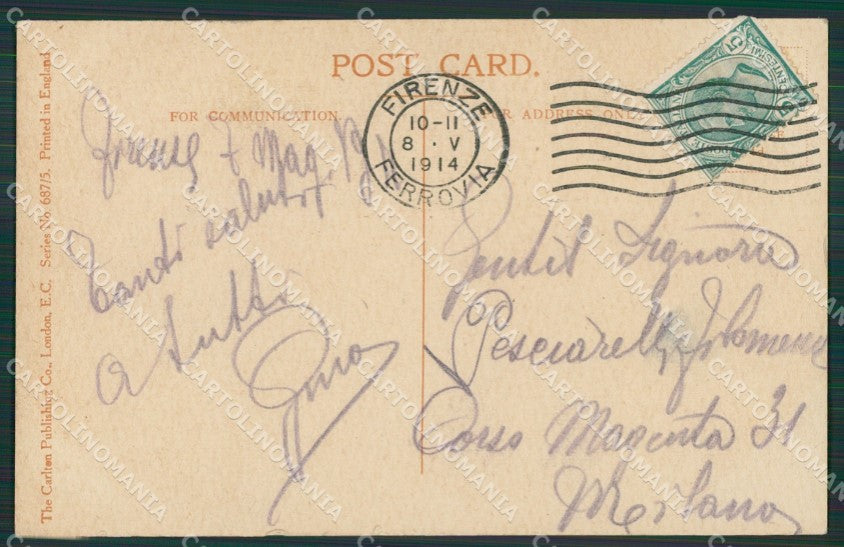 POST CARD.
FOR COMMUNICATION.
FOR ADDRESS ONLY
FIRENZE
10-11
8 · V
1914
FERROVIA
CENTESIMI
Firenze 7 Mag.
Tanti saluti
a tutti
Gino
Gentil Signora
Pesciarelli Filomena
Corso Magenta 31
Milano
The Carlton Publishing Co., London, E.C. Series No. 687/5. Printed in England
CARTOLINOMANIA